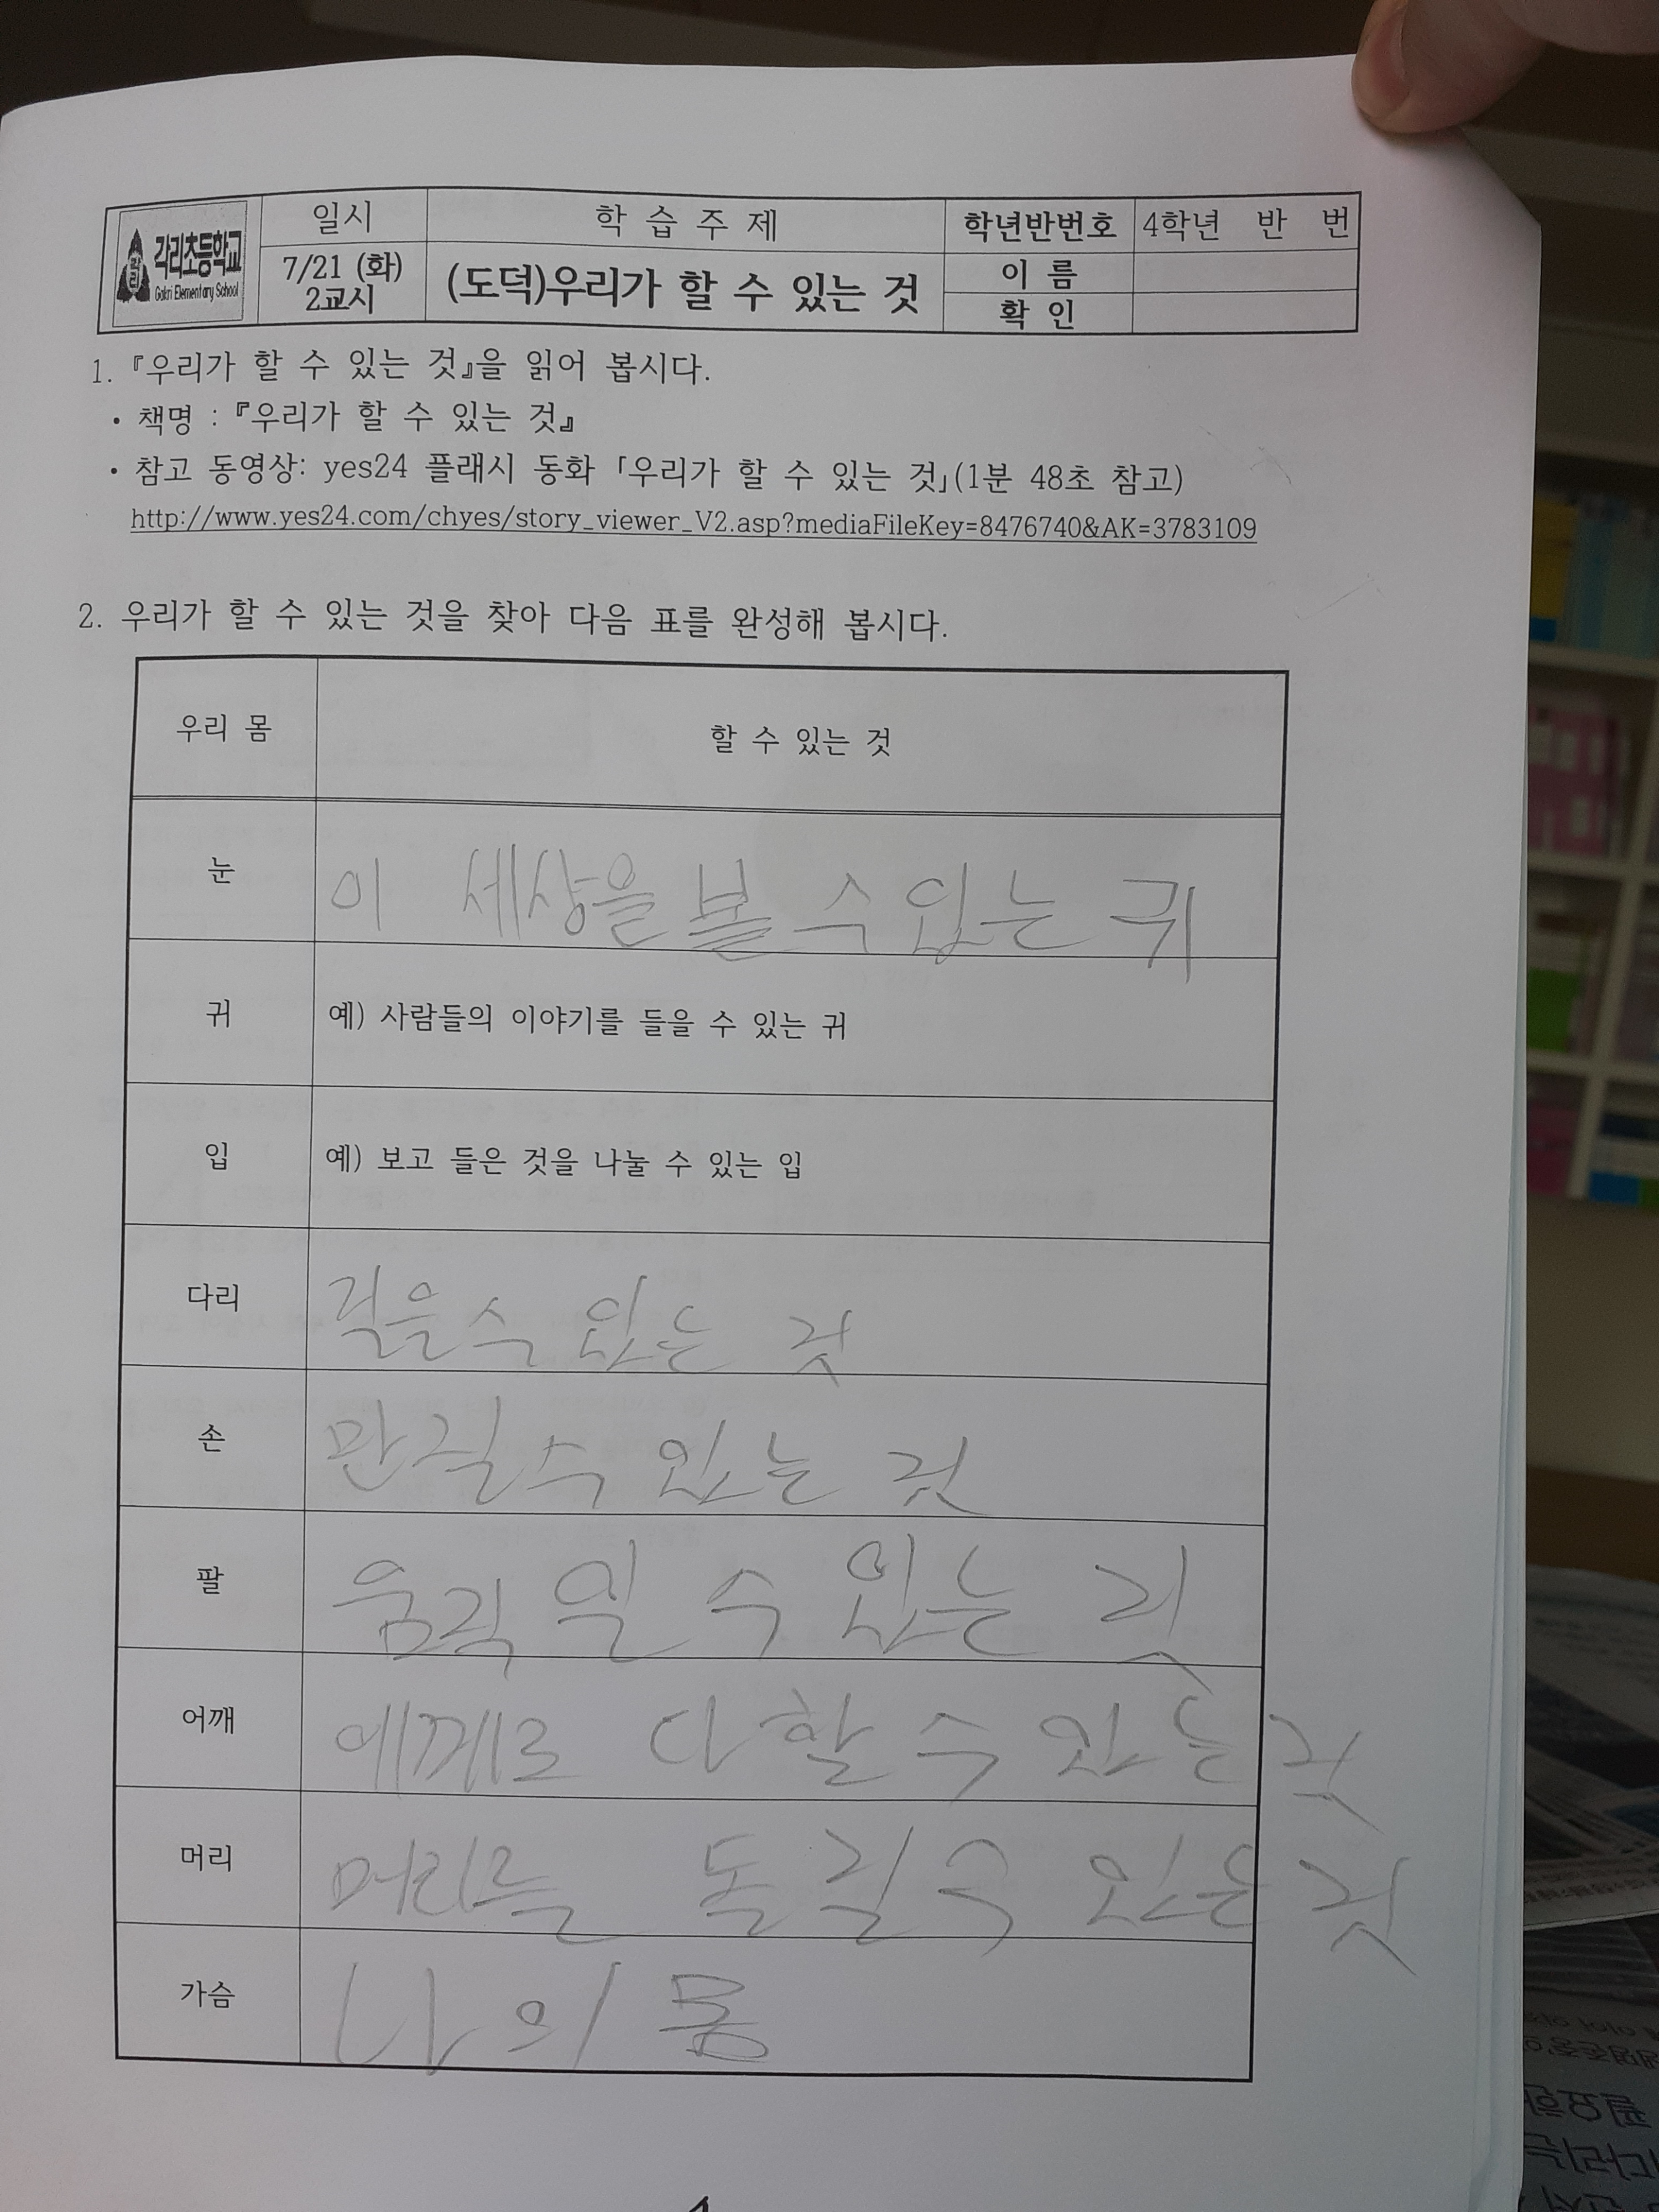 각리초등학교
Gakri Elementary School
일시
학 습 주 제
학년반번호
4학년 반 번
7/21 (화)
2교시
(도덕)우리가 할 수 있는 것
이 름
확 인
1. 『우리가 할 수 있는 것』을 읽어 봅시다.
• 책명 : 『우리가 할 수 있는 것』
• 참고 동영상: yes24 플래시 동화 「우리가 할 수 있는 것」(1분 48초 참고)
http://www.yes24.com/chyes/story_viewer_V2.asp?mediaFileKey=8476740&AK=3783109
2. 우리가 할 수 있는 것을 찾아 다음 표를 완성해 봅시다.
우리 몸
할 수 있는 것
눈
이 세상을 볼 수 있는 귀
귀
예) 사람들의 이야기를 들을 수 있는 귀
입
예) 보고 들은 것을 나눌 수 있는 입
다리
수 있는 것
손
만질수 있는 것
팔
움직일 수 있는 것
어깨
다 할 수 있는 것
머리
있는 것
가슴
나의 몸